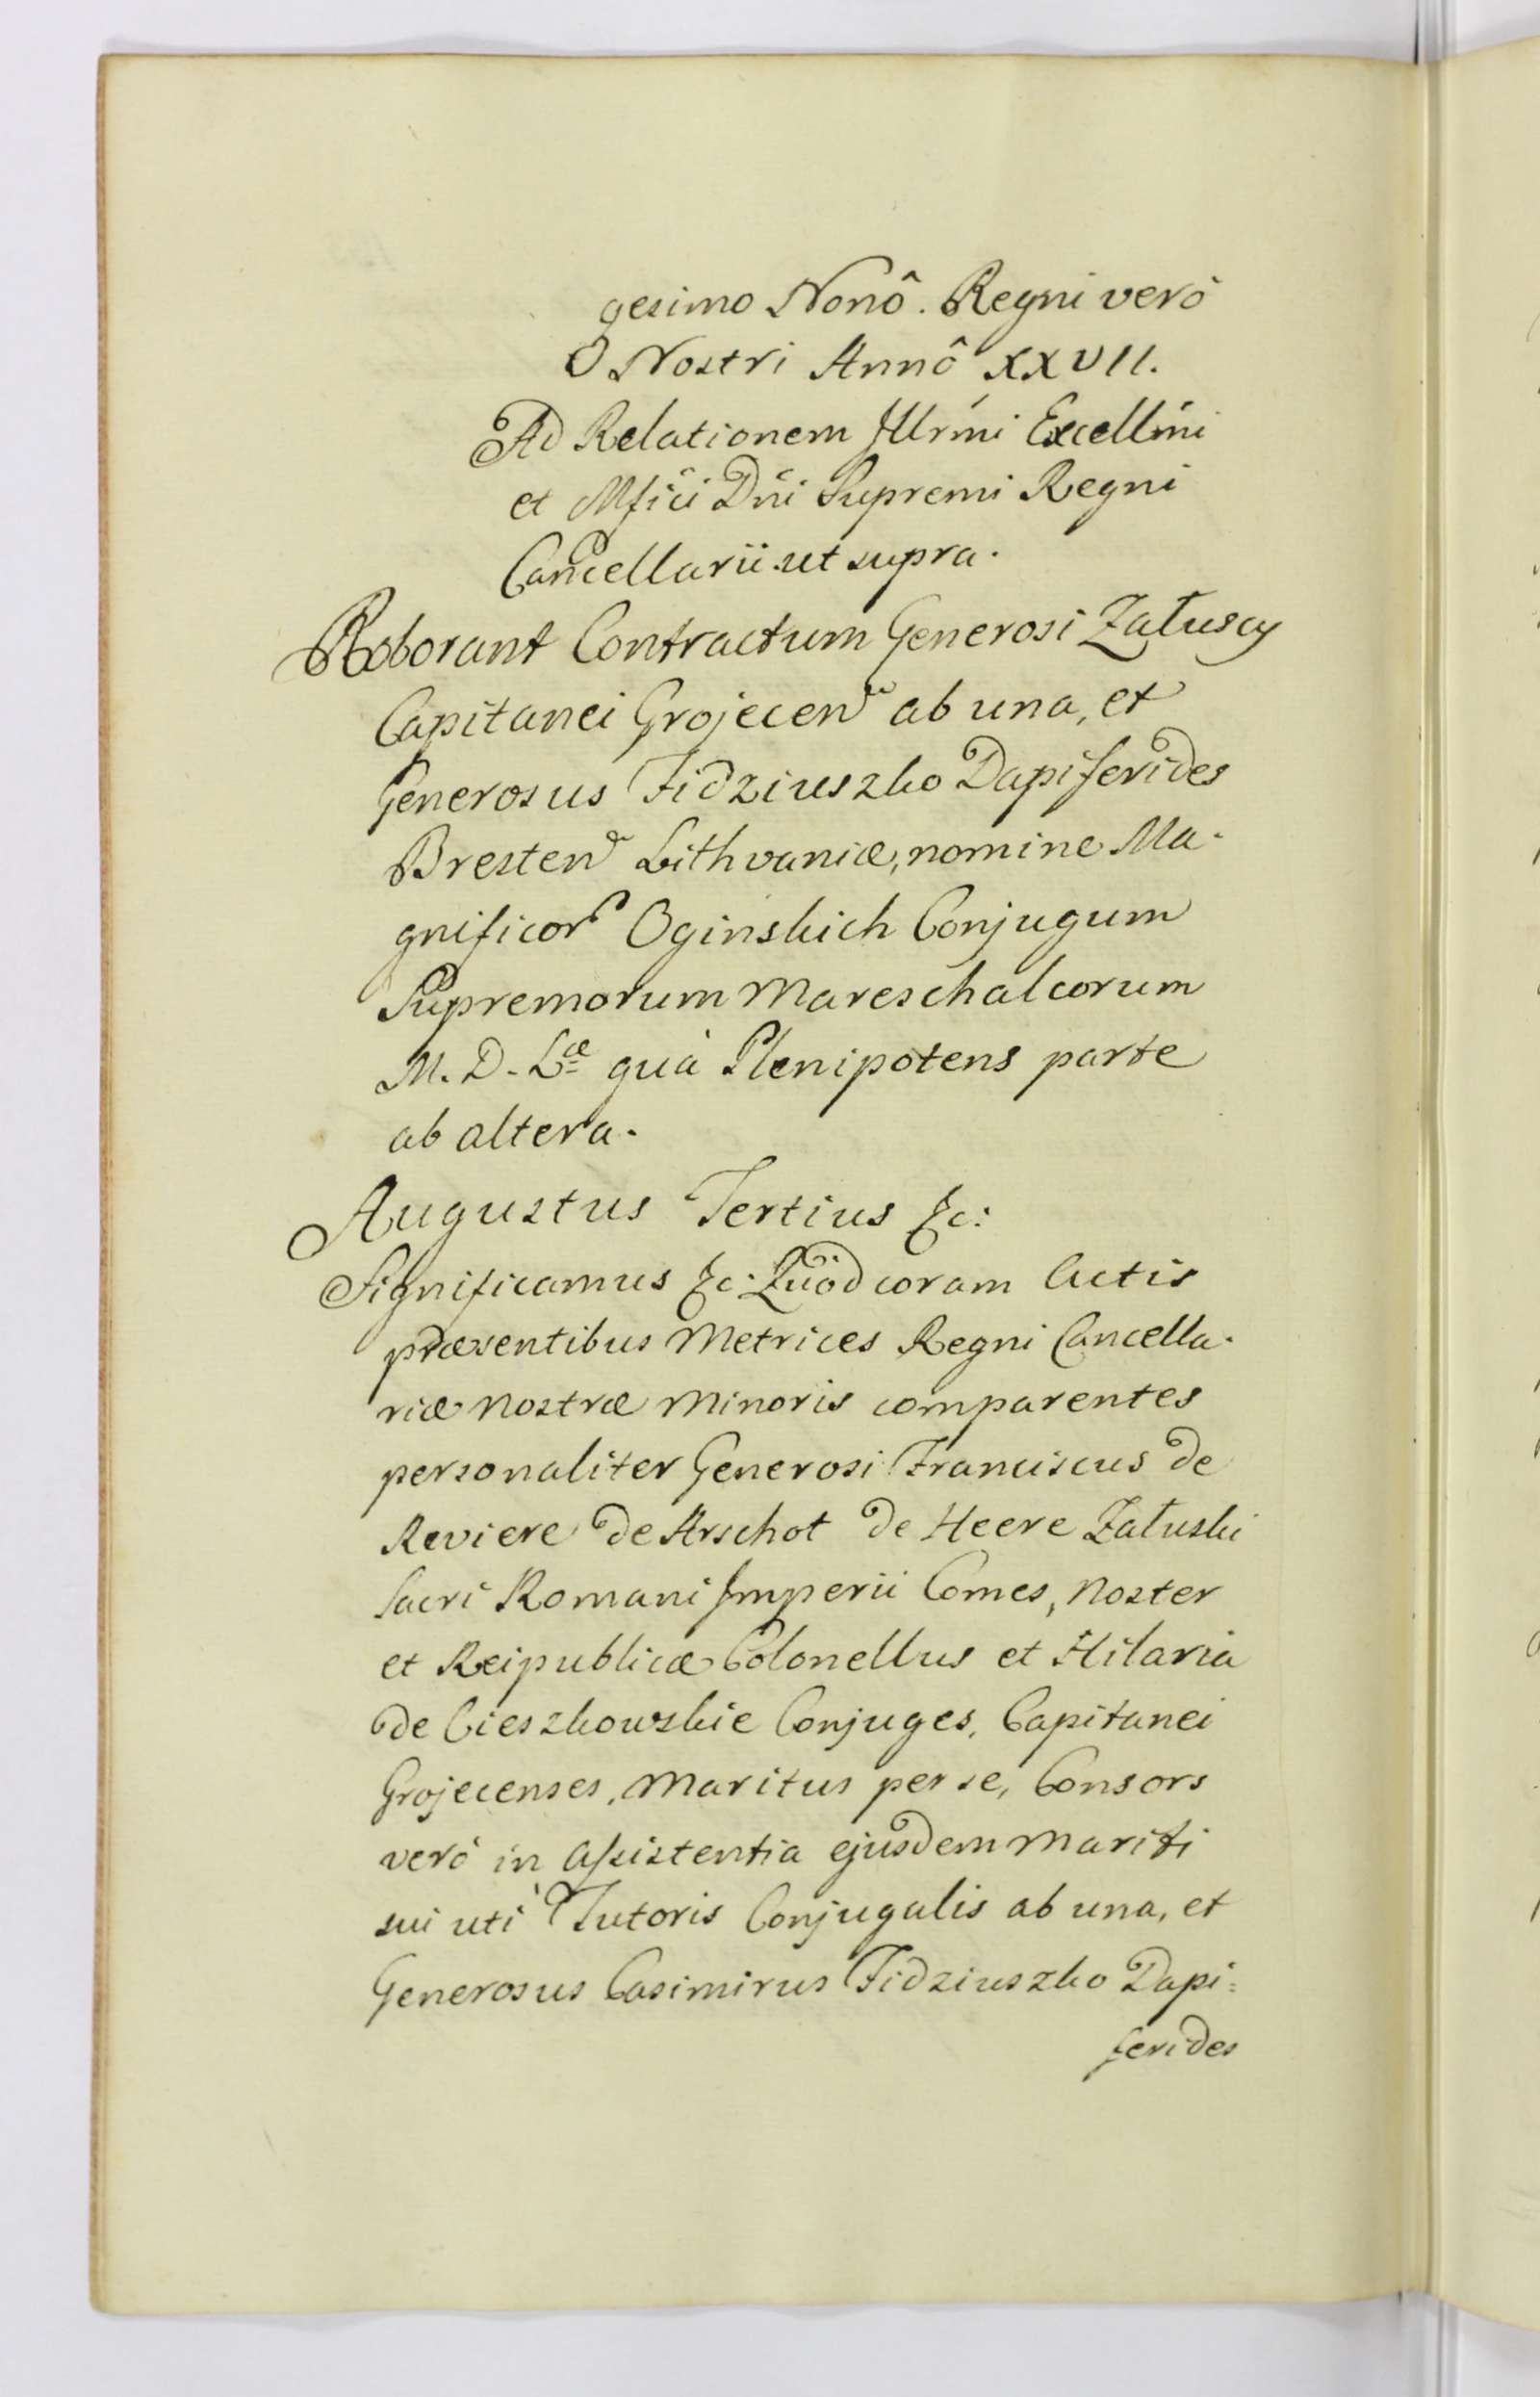 gesimo Nonô. Regni verò
Nostri Annô XXVII.
Ad Relationem Illrmi Excellmi
et Mfici Dni Supremi Regni
Cancellarii ut supra.
Roborant Contractum Generosi Załuscy
Capitanei Grojecen ab una, et
Generosus Fidziuszko Dapiferides
Bresten Lithvaniæ, nomine Ma-
gnificor Oginskich Conjugum
Supremorum Mareschalcorum
M. D. Læ quà Plenipotens parte
ab altera.
Augustus Tertius &c:
Significamus &c: Quòd coram Actis
præsentibus Metrices Regni Cancella-
riæ Nostræ Minoris comparentes
personaliter Generosi Franciscus de
Reviere de Arschot de Heere Załuski
Sacri Romani Imperii Comes, Noster
et Reipublicæ Colonellus et Hilaria
de Cieszkowskie Conjuges, Capitanei
Grojecenses, Maritus per se, Consors
verò in Assistentia ejusdem Mariti
sui uti Tutoris Conjugalis ab una, et
Generosus Casimirus Fidziuszko Dapi=
ferides